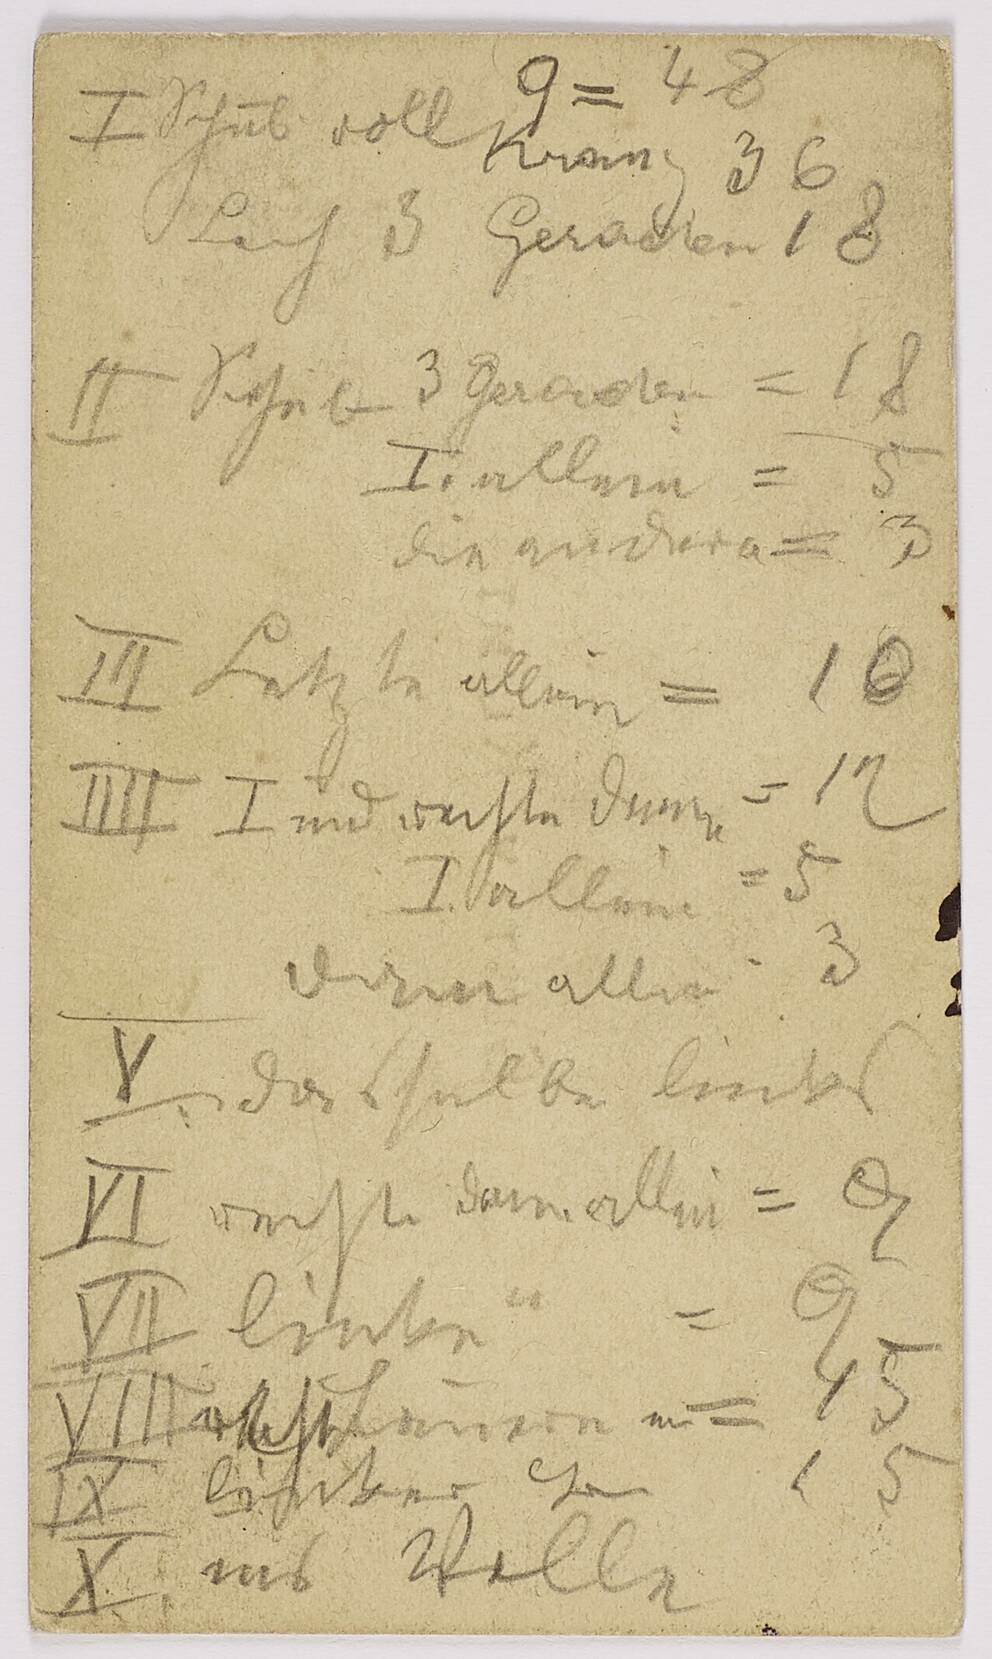 I Schub voll 9 = 48
Kranz 36
Lauf 3 Geraden 18
II Schub 3 Geraden = 18
I. allein = 5
die andern = 3
III Letzte allein = 10
IIII I und rechte Dame = 12
I. allein = 5
Dame allein 3
V. dasselbe links
VI rechte Dame allein = 9
VII linke " = 9
VIII = 45
IX linker 15
X. ins Volle